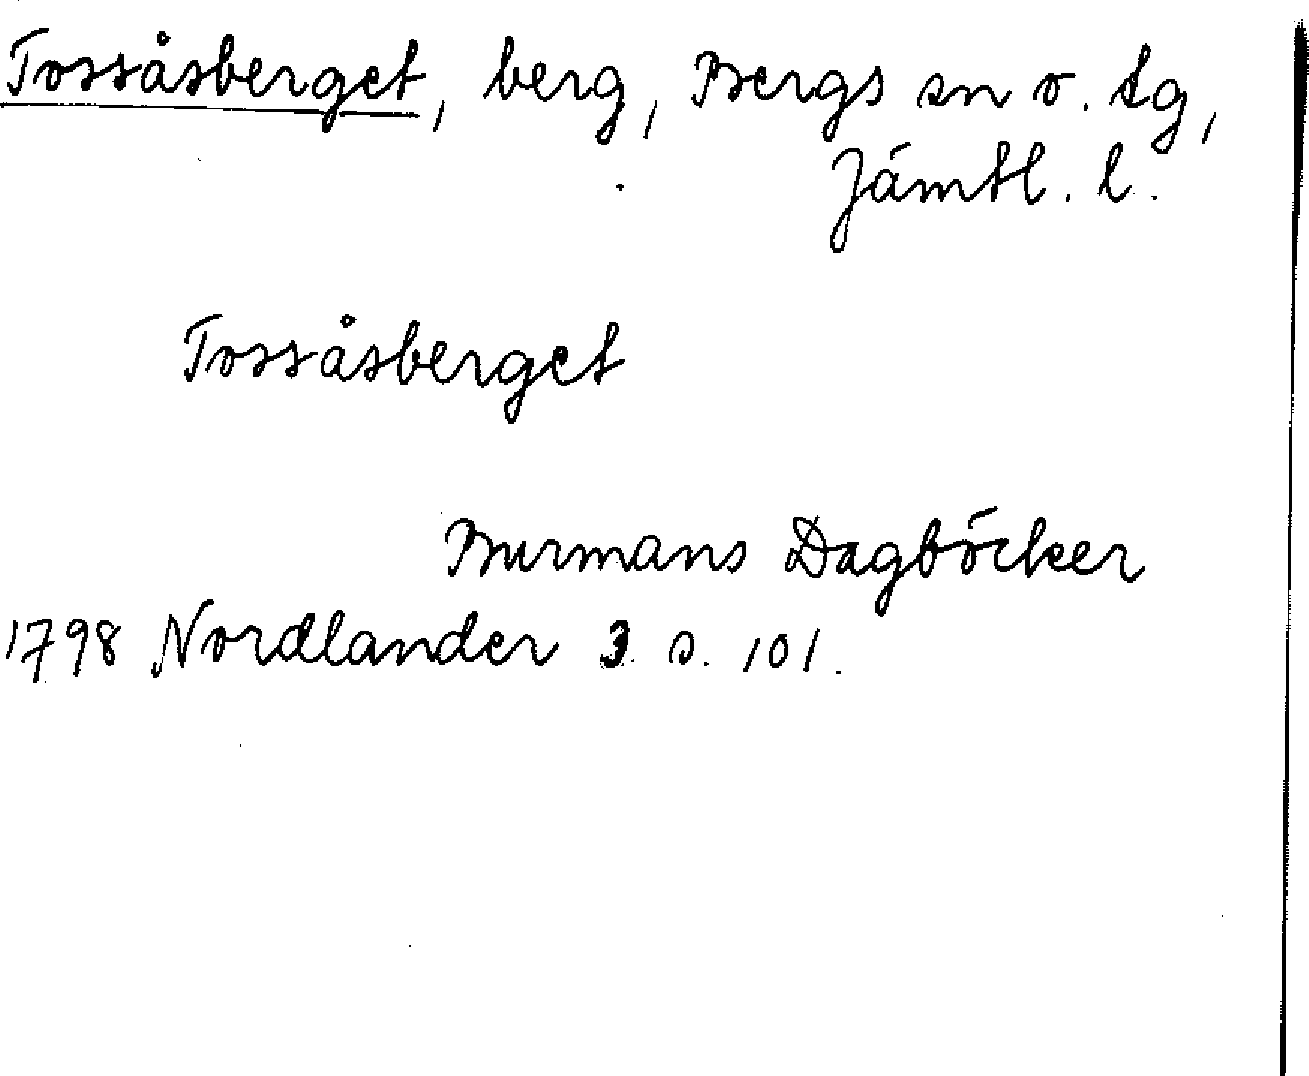 Tossåsberget, berg, Bergs sn o. tg,
Jämtl. l.
Tossåsberget
Burmans Dagböcker
1798 Nordlander 3 s. 101.